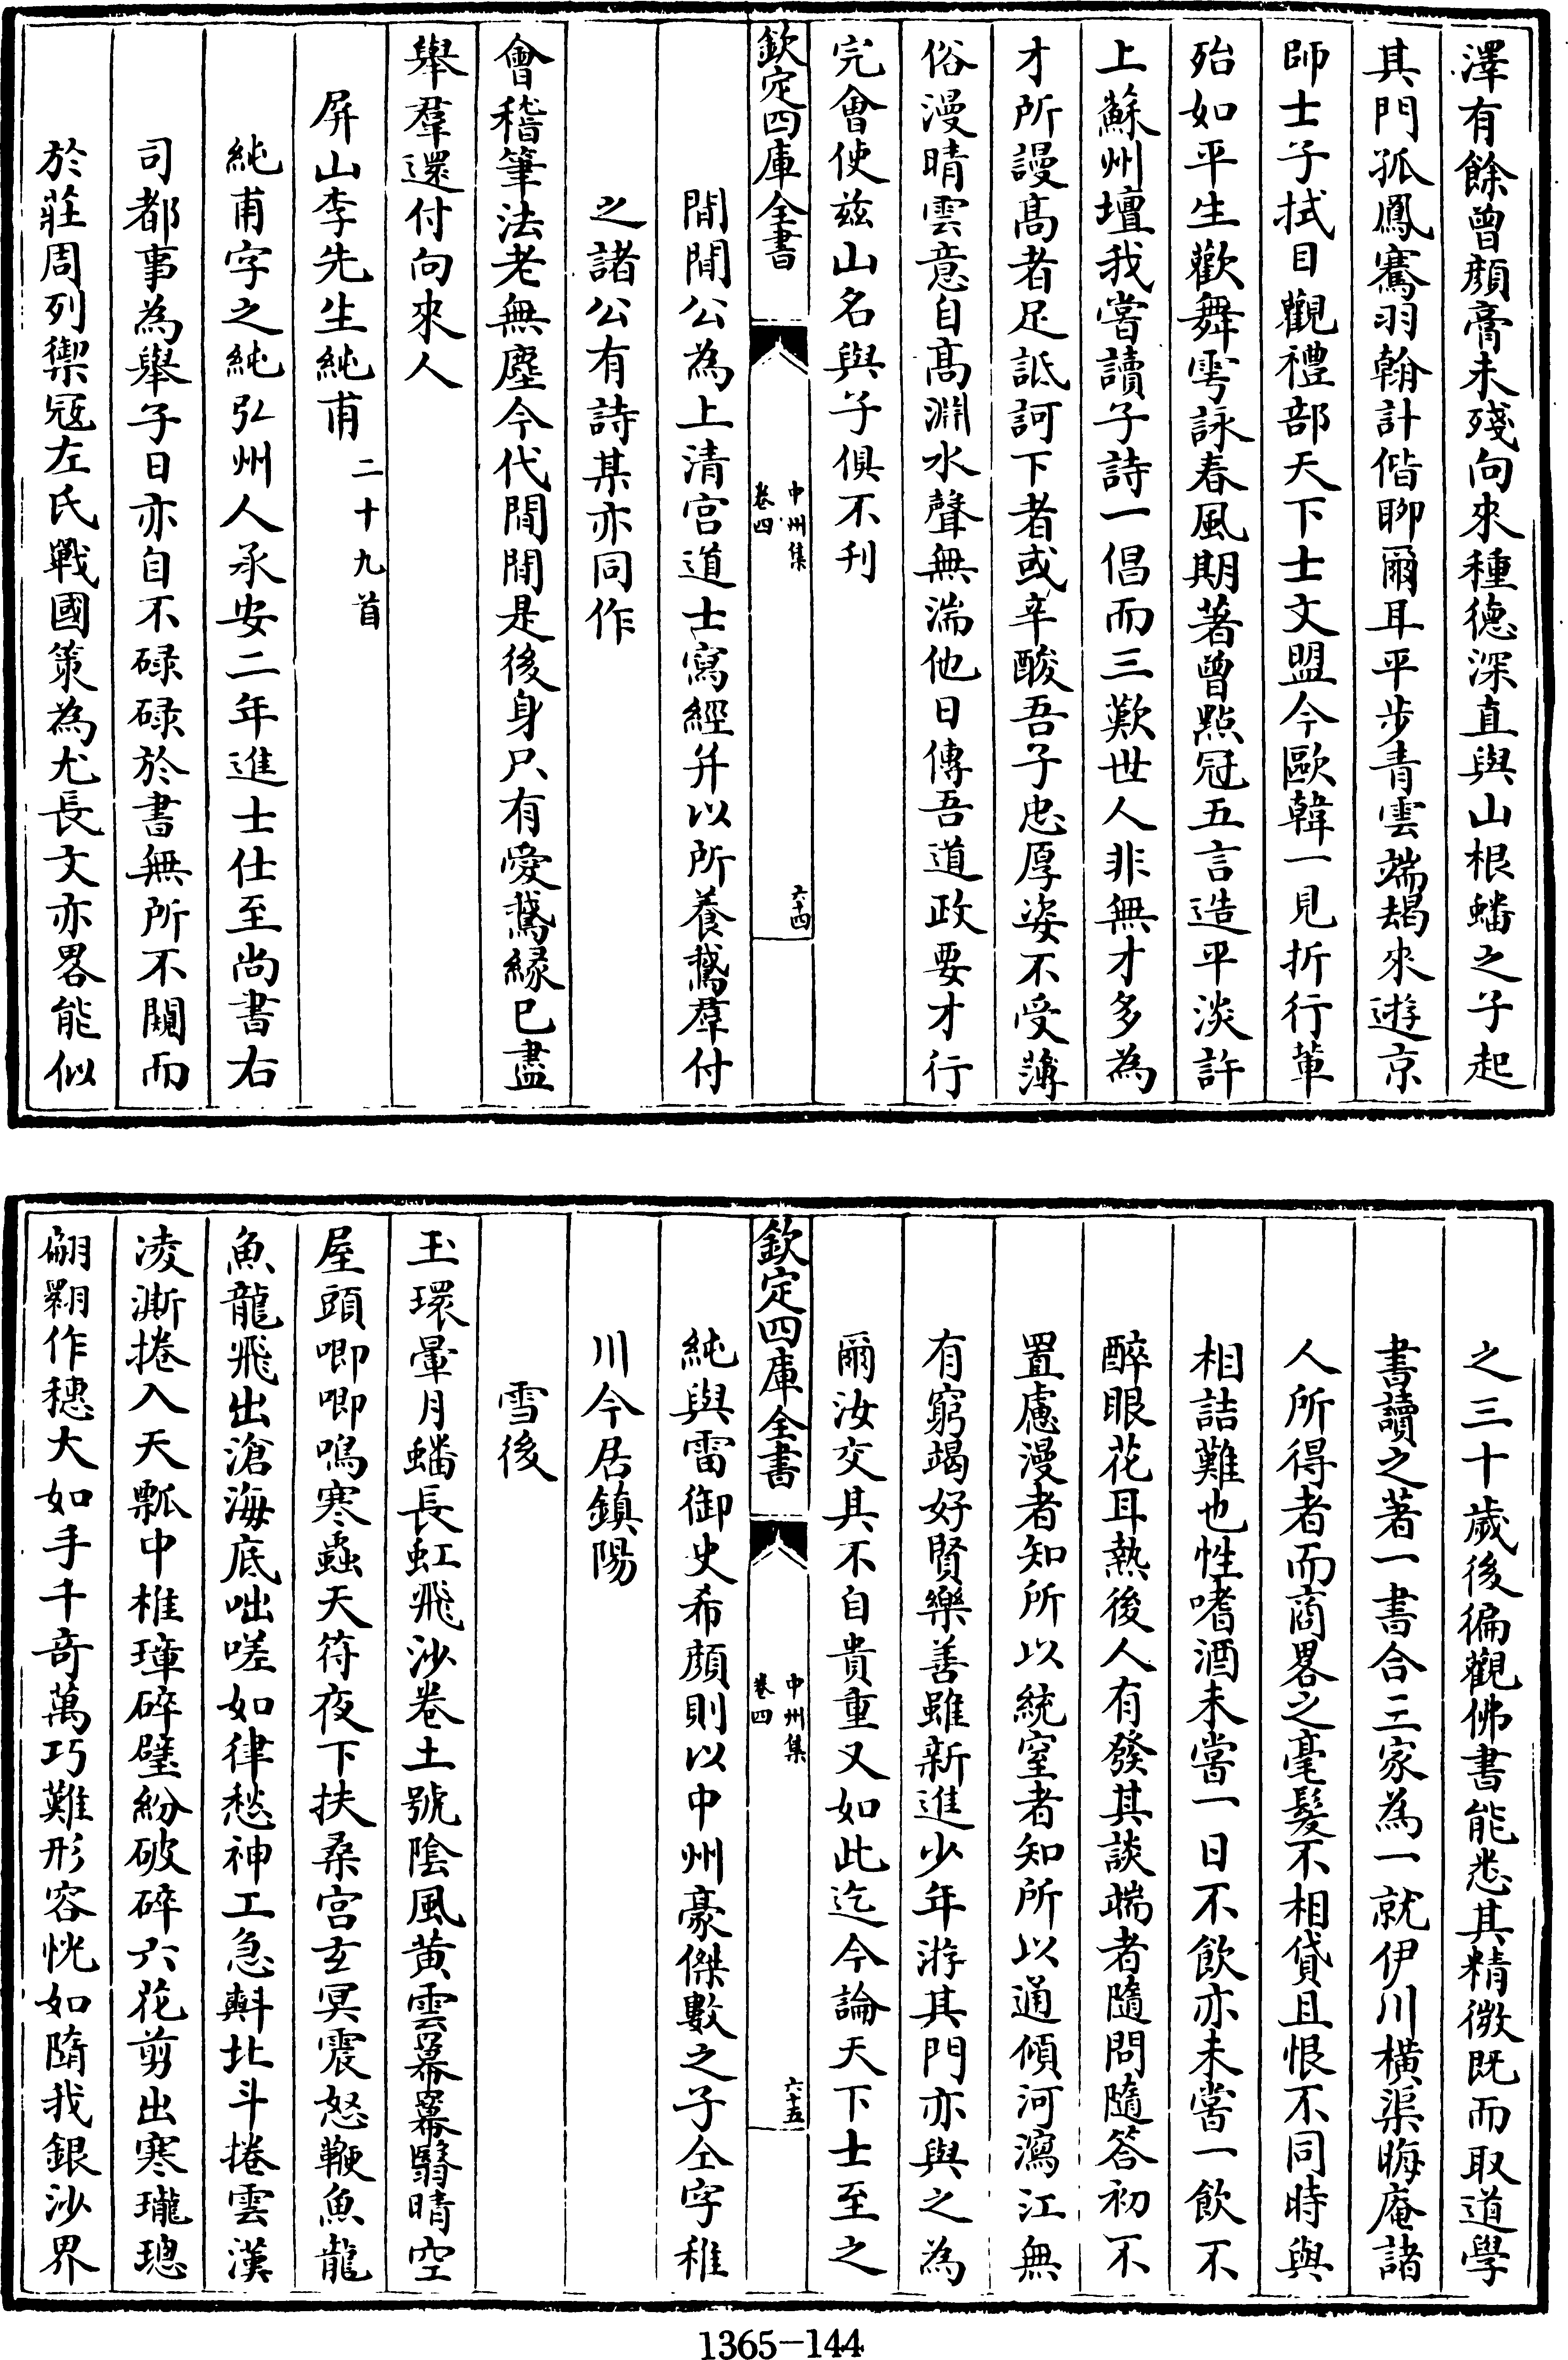 澤有餘曾顔膏未殘向來種德深直與山根蟠之子起
其門孤鳳騫羽翰計偕聊爾耳平步青雲端朅來遊京
師士子拭目觀禮部天下士文盟今歐韓一見折行輩
殆如平生歡舞雩詠春風期著曾㸃冠五言造平淡許
上蘇州壇我嘗讀子詩一倡而三歎世人非無才多為
才所謾髙者足詆訶下者或辛酸吾子忠厚姿不受薄
俗漫晴雲意自髙淵水聲無湍他日傳吾道政要才行
完會使兹山名與子俱不刋
欽定四庫全書
中州集
卷四
六十四
閒閒公為上清宫道士寫經并以所養鵞羣付
之諸公有詩某亦同作
會稽筆法老無塵今代閒閒是後身只有愛鵞縁已盡
舉羣還付向來人
屏山李先生純甫 二十九首
純甫字之純弘州人承安二年進士仕至尚書右
司都事為舉子日亦自不碌碌於書無所不闚而
於莊周列禦冦左氏戰國策為尤長文亦畧能似
之三十歲後徧觀佛書能悉其精微既而取道學
書讀之著一書合三家為一就伊川橫渠晦庵諸
人所得者而商畧之毫髮不相貸且恨不同時與
相詰難也性嗜酒未嘗一日不飲亦未嘗一飲不
醉眼花耳熱後人有發其談端者隨問隨答初不
置慮漫者知所以統窒者知所以通傾河瀉江無
有窮竭好賢樂善雖新進少年游其門亦與之為
爾汝交其不自貴重又如此迄今論天下士至之
欽定四庫全書
中州集
卷四
六十五
純與雷御史希顔則以中州豪傑數之子仝字稚
川今居鎮陽
雪後
玉環暈月蟠長虹飛沙卷土號陰風黄雲幕冪翳晴空
屋頭唧唧鳴寒蟲天符夜下扶桑宫玄冥震怒鞭魚龍
魚龍飛出滄海底咄嗟如律愁神工急㪺北斗捲雲漢
凌澌捲入天瓢中椎璋碎璧紛破碎六花剪出寒瓏璁
翩翾作穗大如手千竒萬巧難形容恍如隋我銀沙界
1365-144